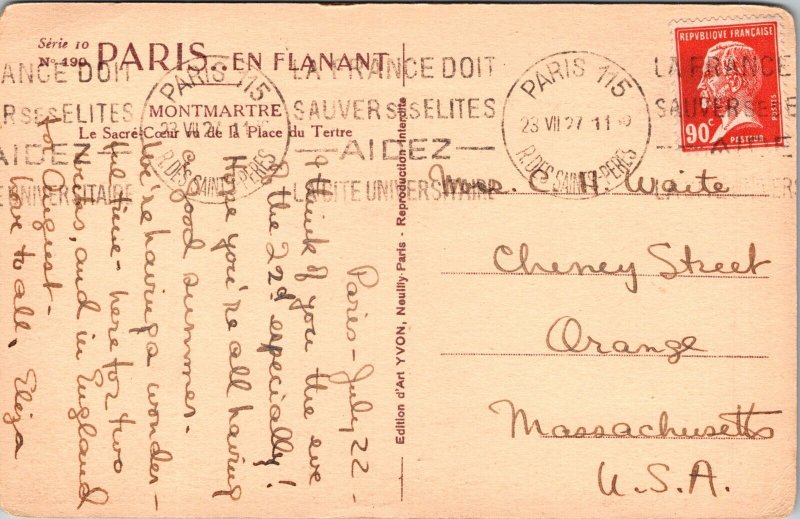 Série 10
Nº 190 PARIS. EN FLANANT
MONTMARTRE
Le Sacré-Cœur vu de la Place du Tertre
PARIS 115
23 VII 27 11
R. DES SAINTS-PÈRES
LA FRANCE DOIT
SAUVER SES ELITES
—AIDEZ—
LA CITE UNIVERSITAIRE
PARIS 115
23 VII 27 11
R. DES SAINTS-PÈRES
LA FRANCE
SAUVER SES E
AIDEZ
REPVBLIQUE FRANÇAISE
90 C
POSTES
PASTEUR
Paris - July 22 -
I think of you the eve
of the 22d especially!
Hope you're all having
a good summer.
We're having a wonder-
ful time - here for two
weeks, and in England
for August -
Love to all. Eliza
Edition d'Art YVON, Neuilly-Paris - Reproduction interdite
Mrs. C. H. Waite
Cheney Street
Orange
Massachusetts
U.S.A.